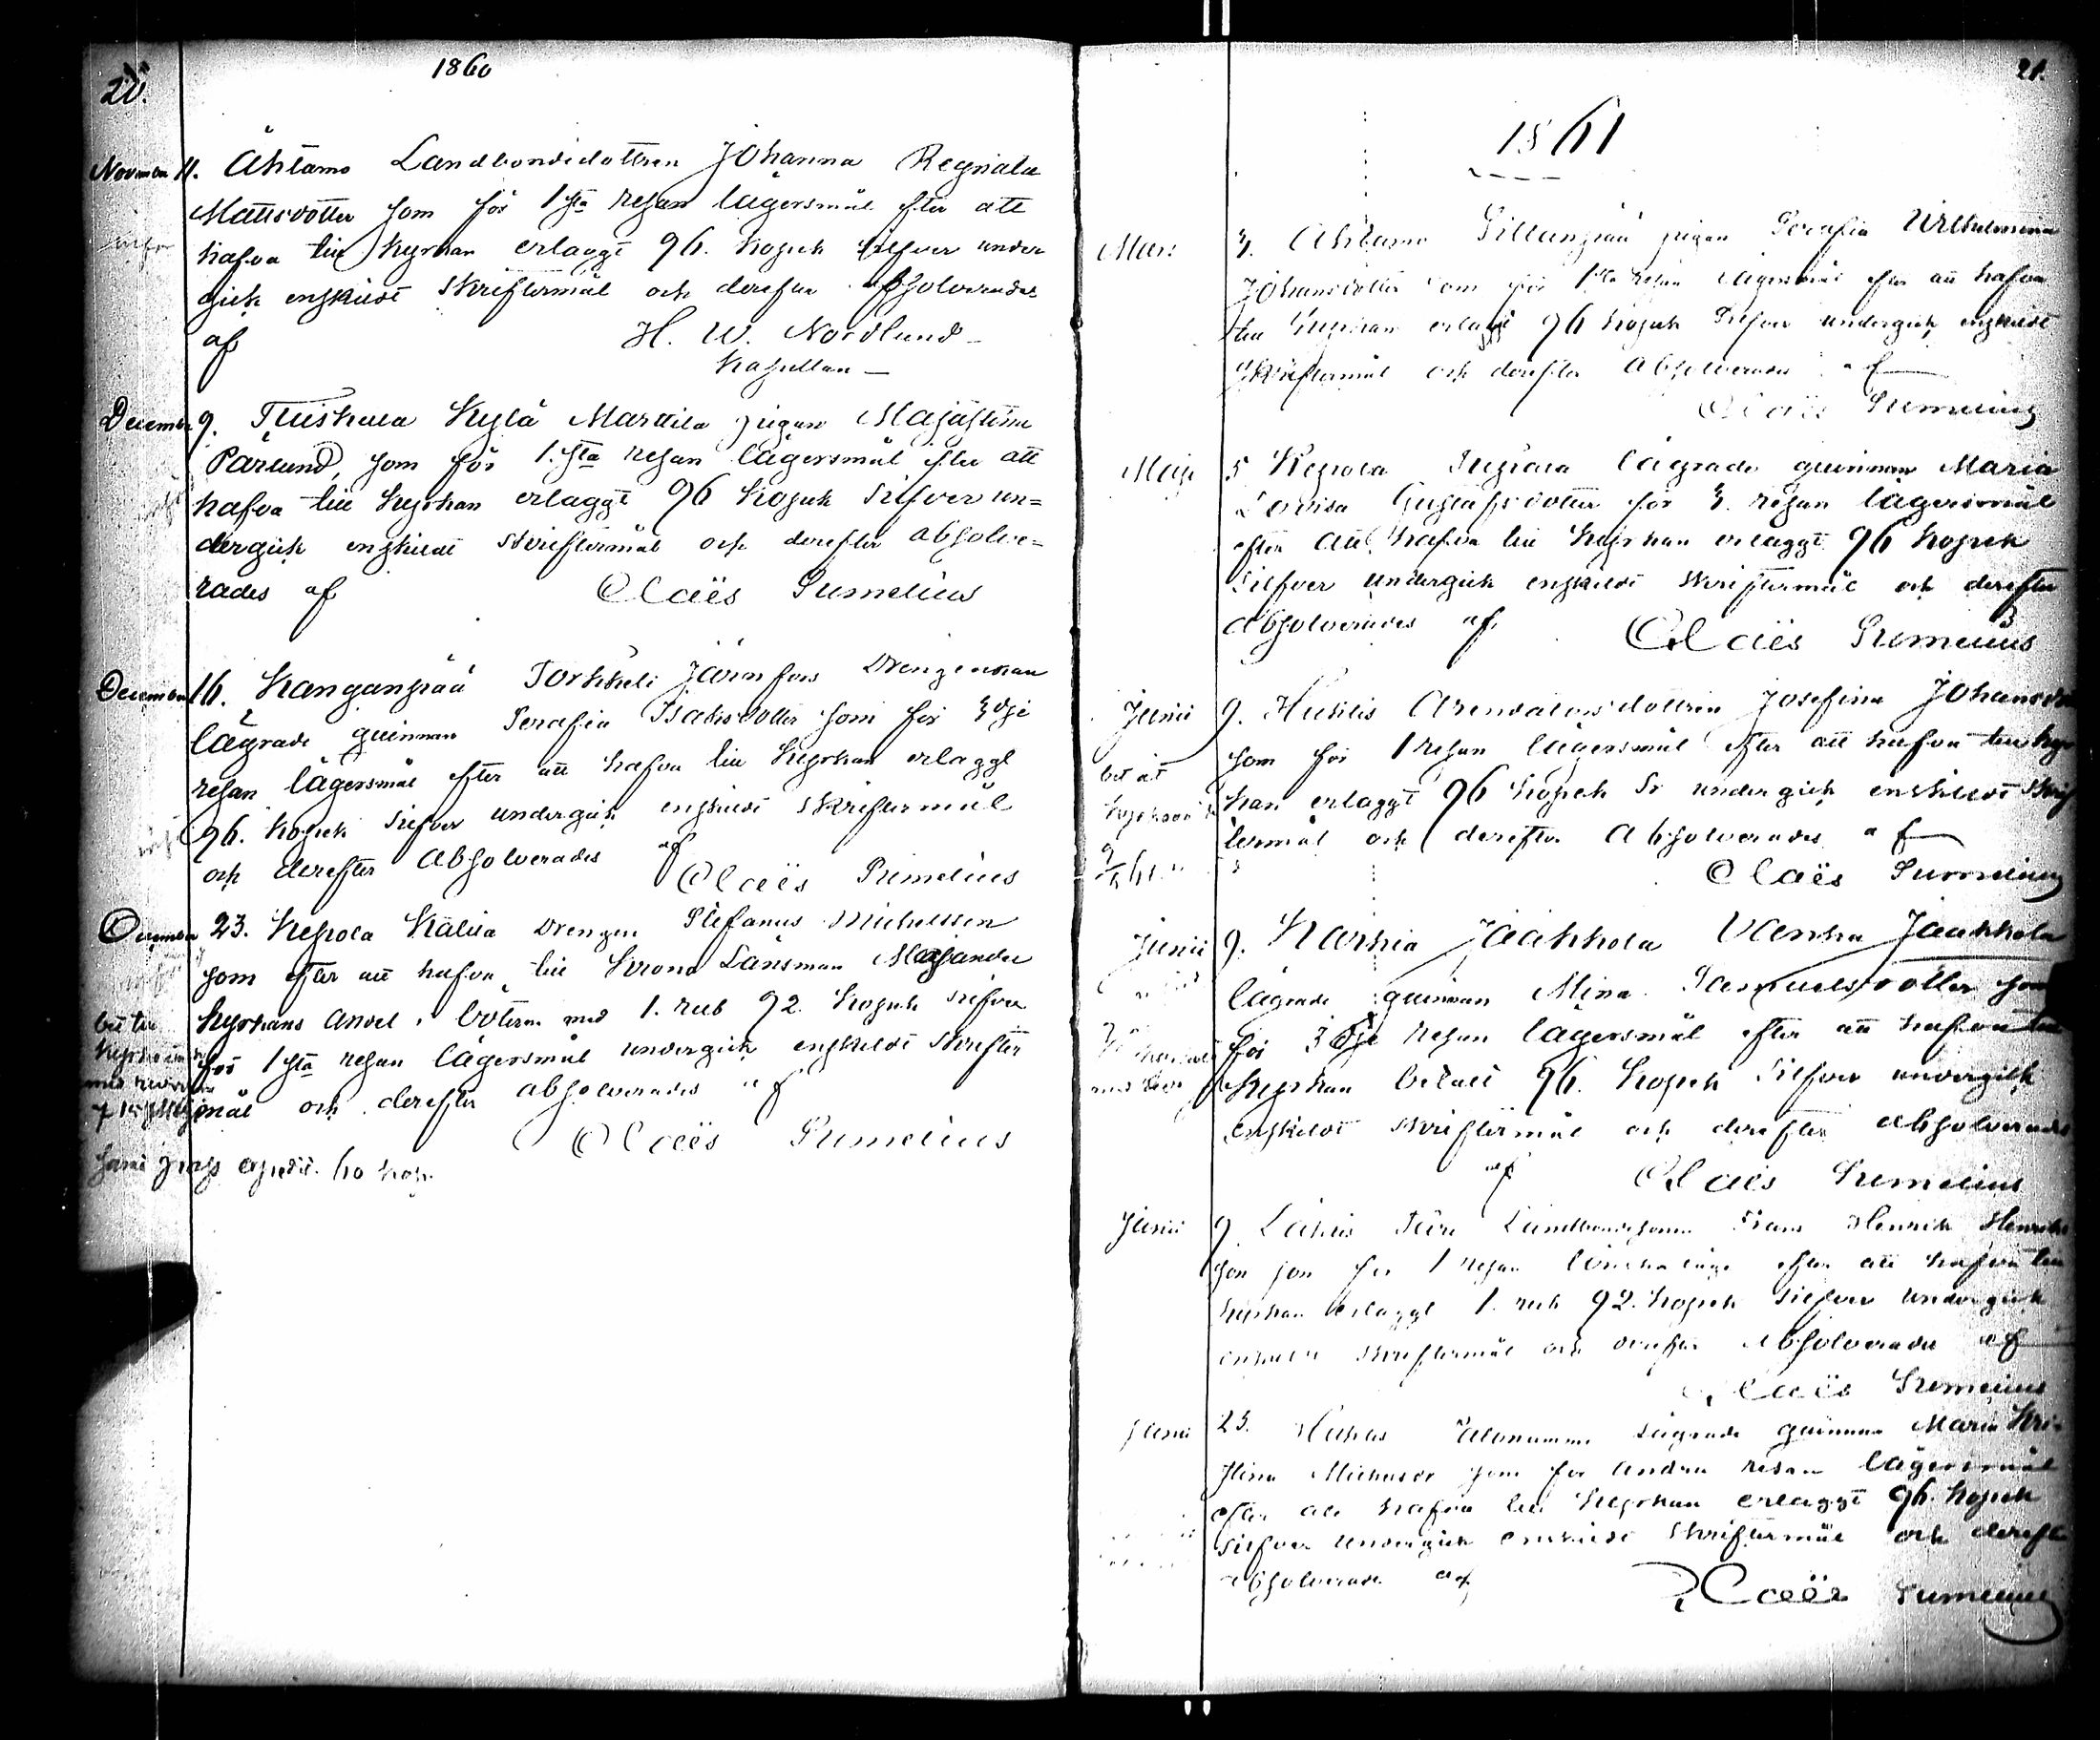 20.
1860
November 11. Åhtamo Landbondedottren Johanna Regnata
Mattsdotter som för 1sta resan lägersmål efter att
hafva till Kyrkan erlaggt 96. kopek silfver under
gick enskildt skriftermål och derefter absolverades
af H. W. Nordlund
Kapellan
December 9. Kylä Marttila pigan Maja Stina
Pärlund, som för 1.sta resan lägersmål efter att
hafva till Kyrkan erlaggt 96 kopek silfver un=
dergick enskildt skriftermål och derefter absolve=
rades af Claës Sumelius
December 16. Kanganpää Torkkeli Järnfors Drengenkan
lägrade qvinnan Serafia Isaksdotter som för 3dje
resan lägersmål efter att hafva till Kyrkan erlaggt
96. kopek silfver undergick enskildt skriftermål
och derefter absolverades af
Claës Sumelius
December 23. Kepola Kälviä Drengen Stefanus Michelsson
som efter att hafva till Krono Länsman Majander
Kyrkans andel i böterne med 1. rub 92. kopek silfver
för 1sta resan lägersmål undergick enskildt skrifter
mål och derefter absolverades af
Claës Sumelius
60 kop.
21.
1861
Mars 3. Åhtamo pigan Serafia Wilhelmina
Johansdotter som för 1sta resan lägersmål efter att hafva
till Kyrkan erlagt 96 kopek Silfver undergick enskildt
skriftermål och derefter absolverades af
Claës Sumelius
Maji 5 Kepola lägrade qvinnan Maria
Lovisa Gustafsdotter för 3. resan lägersmål
efter att hafva till Kyrkan erlaggt 96 kopek
Silfver undergick enskildt skriftermål och derefter
absolverades af Claës Sumelius
Junii 9. Huhtis Arendators dottren Josefina Johansdr
som för 1 resan lägersmål efter att hafva till Kyr
kan erlaggt 96 kopek Sr undergick enskildt skrif
termål och derefter absolverades af
Claës Sumelius
Junii 9. Karhia Jaakkola Vanha Jaakkola
lägrade qvinnan Mina Samuelsdotter som
för 3dje resan lägersmål efter att hafva till
Kyrkan betalt 96. kopek Silfver undergick
enskildt skriftermål och derefter absolverades
af Claës Sumelius
Junii 9 Landbondesonen Frans Henrik Henriks
son som för 1 resan efter att hafva till
kyrkan erlaggt 1. rub 92. kopek silfver undergick
enskildt skriftermål och derefter absolverades af
Claës Sumelius
Junii 23. lägrade qvinnan Maria Kri=
stina som för andra resan lägersmål
efter att hafva till Kyrkan erlaggt 96. kopek
silfver undergick enskildt skriftermål och derefter
absolverades af Claës Sumelius